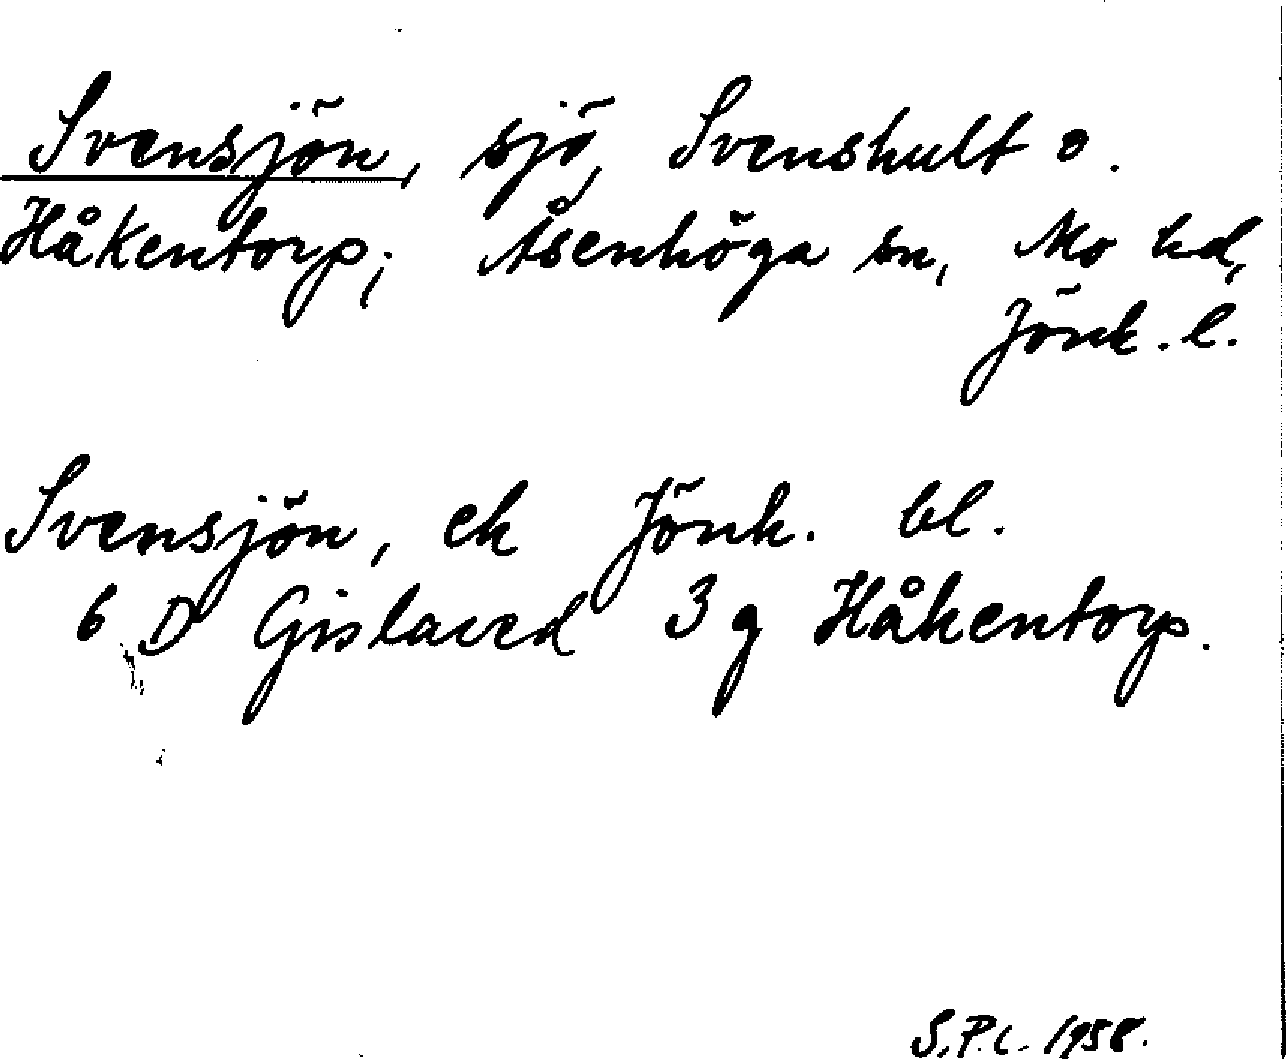 Svensjön, sjö, Svenshult o.
Håkentorp; Åsenhöga sn, Mo hd,
Jönk. l.
Svensjön, ek Jönk. bl.
6 D Gislaved 3 g Håkentorp.
S.P.C. 1958.